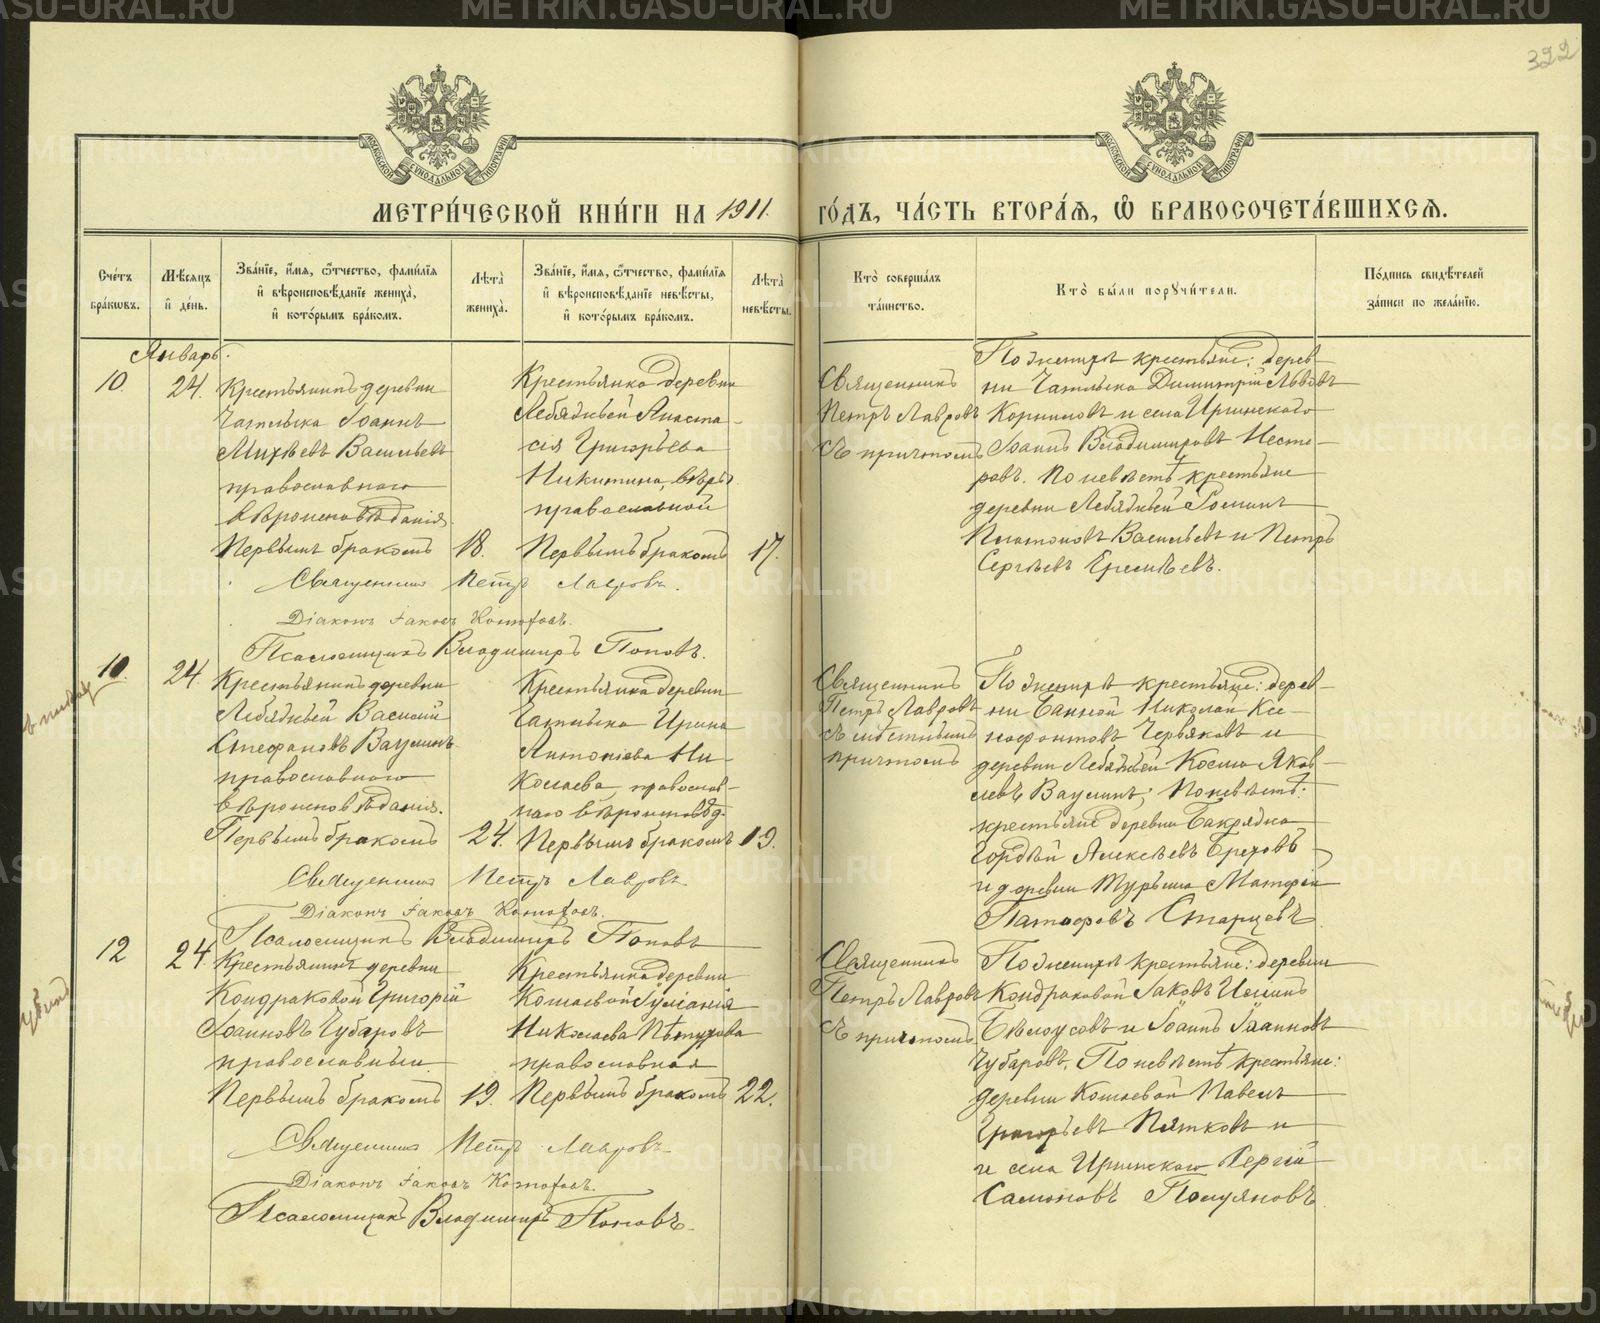 322
МОСКОВСКОЙ СѴНОДАЛЬНОЙ ТИПОГРАФІИ
МОСКОВСКОЙ СѴНОДАЛЬНОЙ ТИПОГРАФІИ
МЕТРИ́ЧЕСКОЙ КНИ́ГИ НА 1911. ГО́ДЪ, ЧА́СТЬ ВТОРА́Я, Ѽ БРАКОСОЧЕТА́ВШИХСЯ.
Сче́тъ бра́кѡвъ.
Мѣ́сяцъ и҆ де́нь.
Зва́нїе, и҆́мя, ѻ҆́тчество, фамѝлїя и҆ вѣроисповѣ́данїе жениха̀, и҆ кото́рымъ бра́комъ.
Лѣ́та̀ жениха̀.
Зва́нїе, и҆́мя, ѻ҆́тчество, фамѝлїя и҆ вѣроисповѣ́данїе невѣ́сты, и҆ кото́рымъ бра́комъ.
Лѣ́та̀ невѣ́сты.
Кто̀ соверша́лъ та́инство.
Кто̀ бы́ли порꙋчи́тели.
По́дпись свидѣ́телей за́писи по жела́нїю.
Январь.
10.
24.
Крестьянинъ деревни
Чатлыка Іоаннъ
Михѣевъ Васильевъ
православнаго
вѣроисповѣданія.
Первымъ бракомъ
18.
Крестьянка деревни
Лебяжьей Анаста-
сія Григорьева
Никитина, вѣры
православной
Первымъ бракомъ
17.
Священникъ
Петръ Лавровъ
съ причтомъ
По женихѣ крестьяне: дерев
ни Чатлыка Димитрій Львовъ
Корниловъ и села Иргинскаго
Іоаннъ Владимировъ Несте-
ровъ. По невѣстѣ крестьяне
деревни Лебяжьей
Платоновъ Васильевъ и Петръ
Сергѣевъ Еремѣевъ.
Священникъ Петръ Лавровъ.
Діаконъ Іаковъ
Псаломщикъ Владимиръ Поповъ.
10.
24.
Крестьянинъ деревни
Лебяжьей Василій
Стефановъ Ваулинъ
православнаго
вѣроисповѣданія.
Первымъ бракомъ
24.
Крестьянка деревни
Чатлыка Ирина
Антоніева Ни-
колаева, православ-
наго вѣроисповѣд.
Первымъ бракомъ
19.
Священникъ
Петръ Лавровъ
съ мѣстнымъ
причтомъ
По женихѣ крестьяне: дерев-
ни Банной Николай Ксе-
нофонтовъ Червяковъ и
деревни Лебяжьей Косма Яков-
левъ Ваулинъ; По невѣстѣ:
крестьяне деревни Бакряжа
Гордѣй Алексѣевъ
и деревни Турыша Матфій
Старцевъ
Священникъ Петръ Лавровъ.
Діаконъ Іаковъ
Псаломщикъ Владимиръ Поповъ
12
24.
Крестьянинъ деревни
Кондраковой Григорій
Іоанновъ Чубаровъ
православный.
Первымъ бракомъ
19.
Крестьянка деревни
Кошаевой Іуліанія
Николаева Пѣтухова
православная
Первымъ бракомъ
22.
Священникъ
Петръ Лавровъ
съ причтомъ
По женихѣ крестьяне: деревни
Кондраковой Іаковъ
Бѣлоусовъ и Іоаннъ Іоанновъ
Чубаровъ. По невѣстѣ крестьяне:
деревни Кошаевой Павелъ
Григорьевъ Пятковъ и
и села Иргинскаго Сергій
Самоновъ Полуяновъ
Священникъ Петръ Лавровъ.
Діаконъ Іаковъ
Псаломщикъ Владимиръ Поповъ.
METRIKI.GASO-URAL.RU